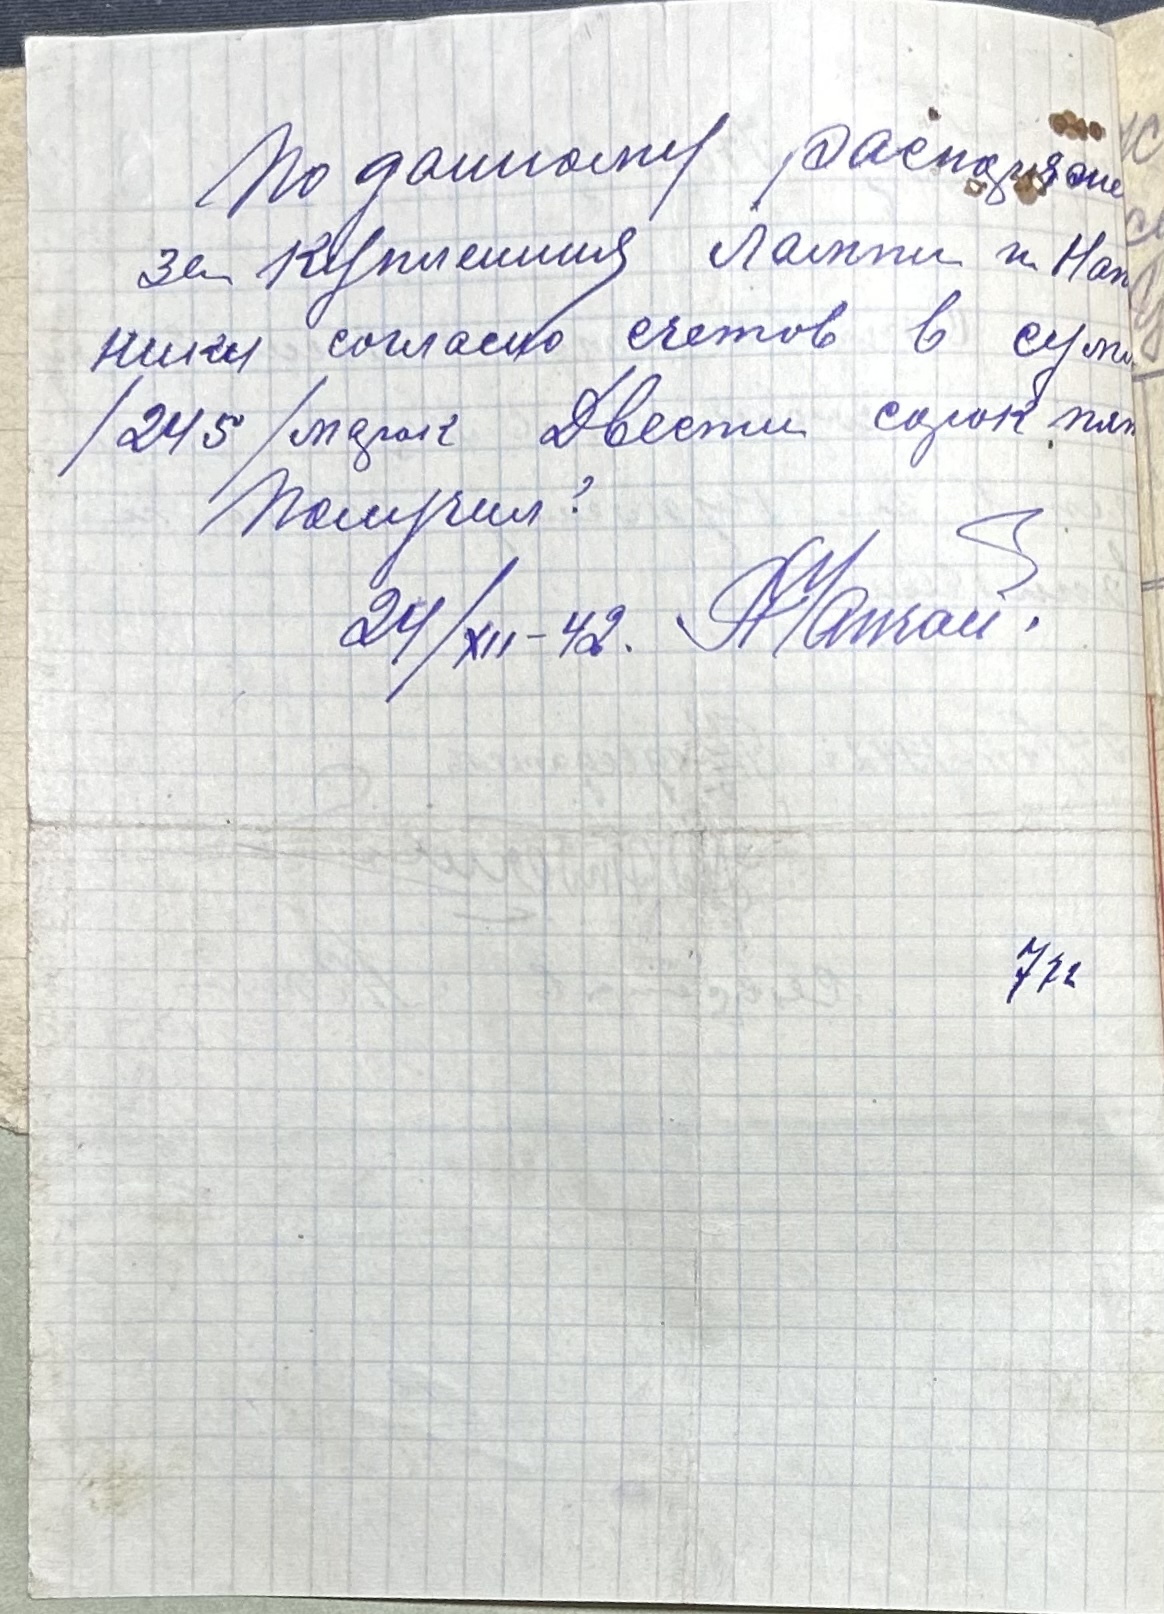 По данному распоряже
за купленния Лампи и Нап
ники согласно счетов в сумм
/245/ марок Двести сорок пят
Получил:
24/XII-42.